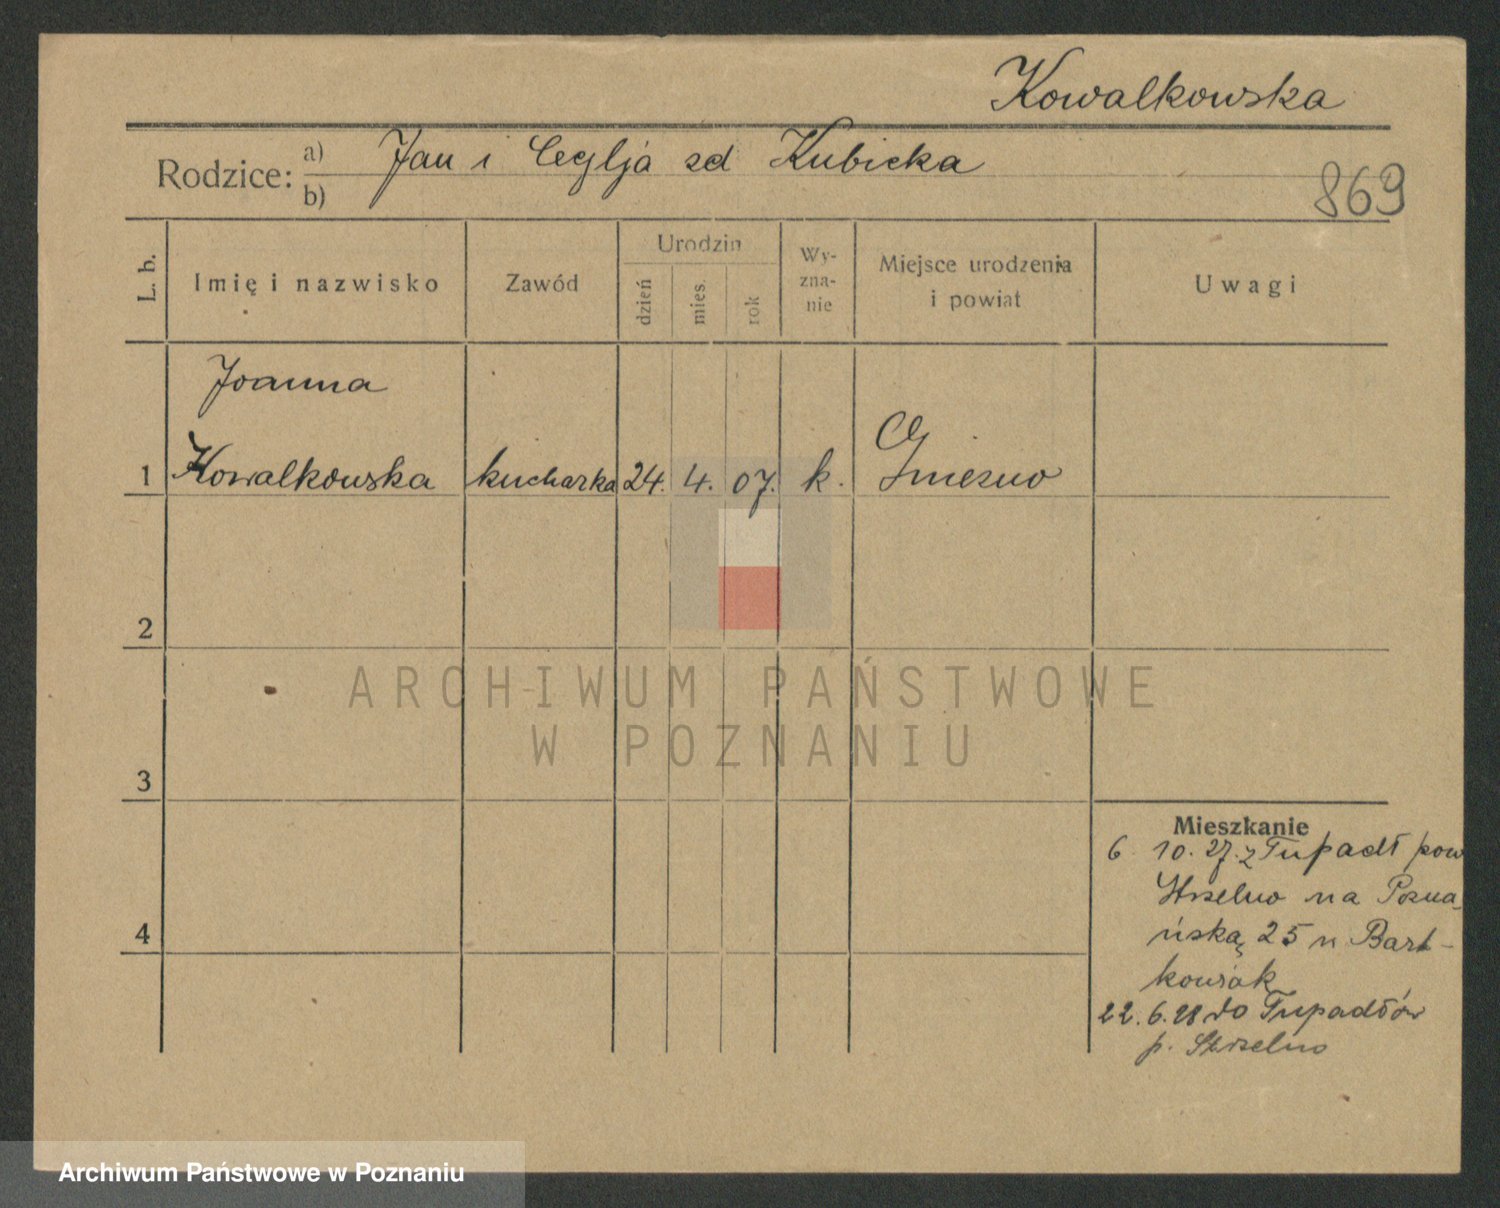 Kowalkowska
Rodzice: a) Jan i Ceglja zd Kubicka
b)
869
L. b.
Imię i nazwisko
Zawód
Urodzin
dzień
mies.
rok
Wy-
zna-
nie
Miejsce urodzenia
i powiat
Uwagi
Joanna
1 Kowalkowska kucharka 24. 4. 07. k. Gniezno
2
3
4
Mieszkanie
6. 10. 27. z Tupadł pow
Strzelno na Pozna-
ńską 25 u Bart-
kowiak
22. 6. 28 do Tupadłów
p. Strzelno
ARCHIWUM PAŃSTWOWE
W POZNANIU
Archiwum Państwowe w Poznaniu